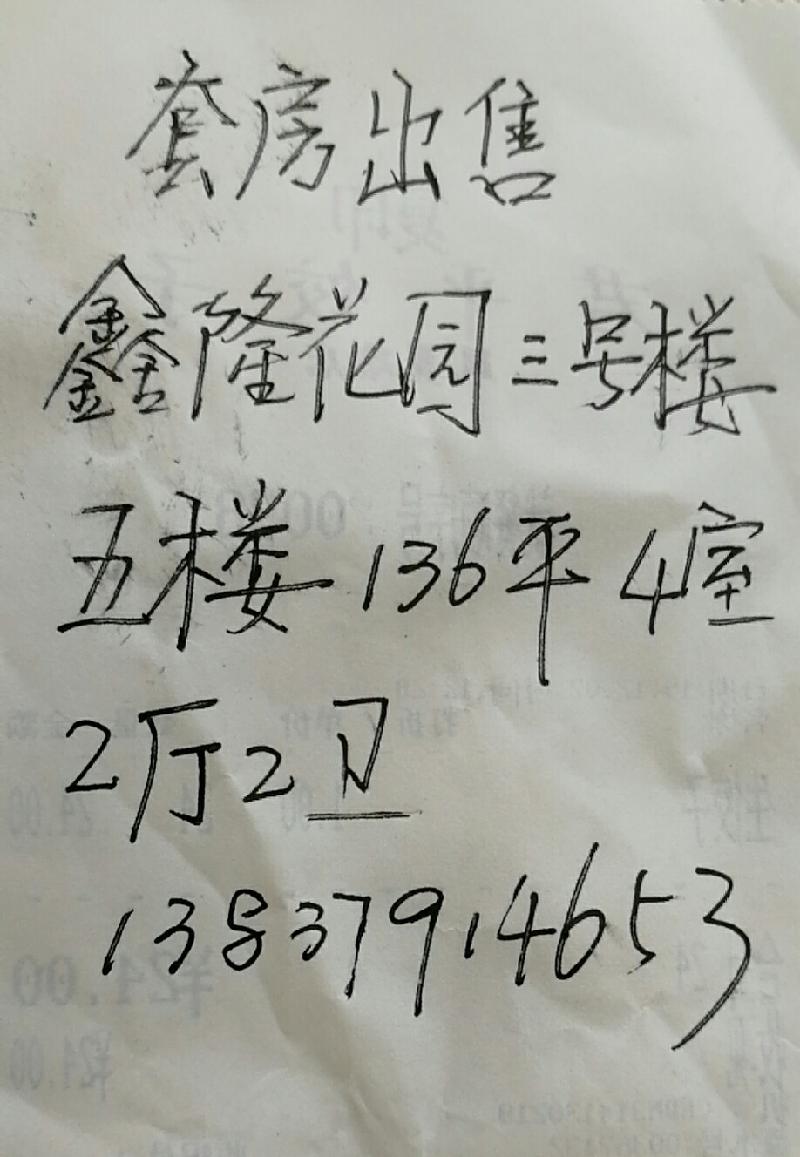 套房出售
鑫隆花园三号楼
五楼136平4室
2厅2卫
13837914653